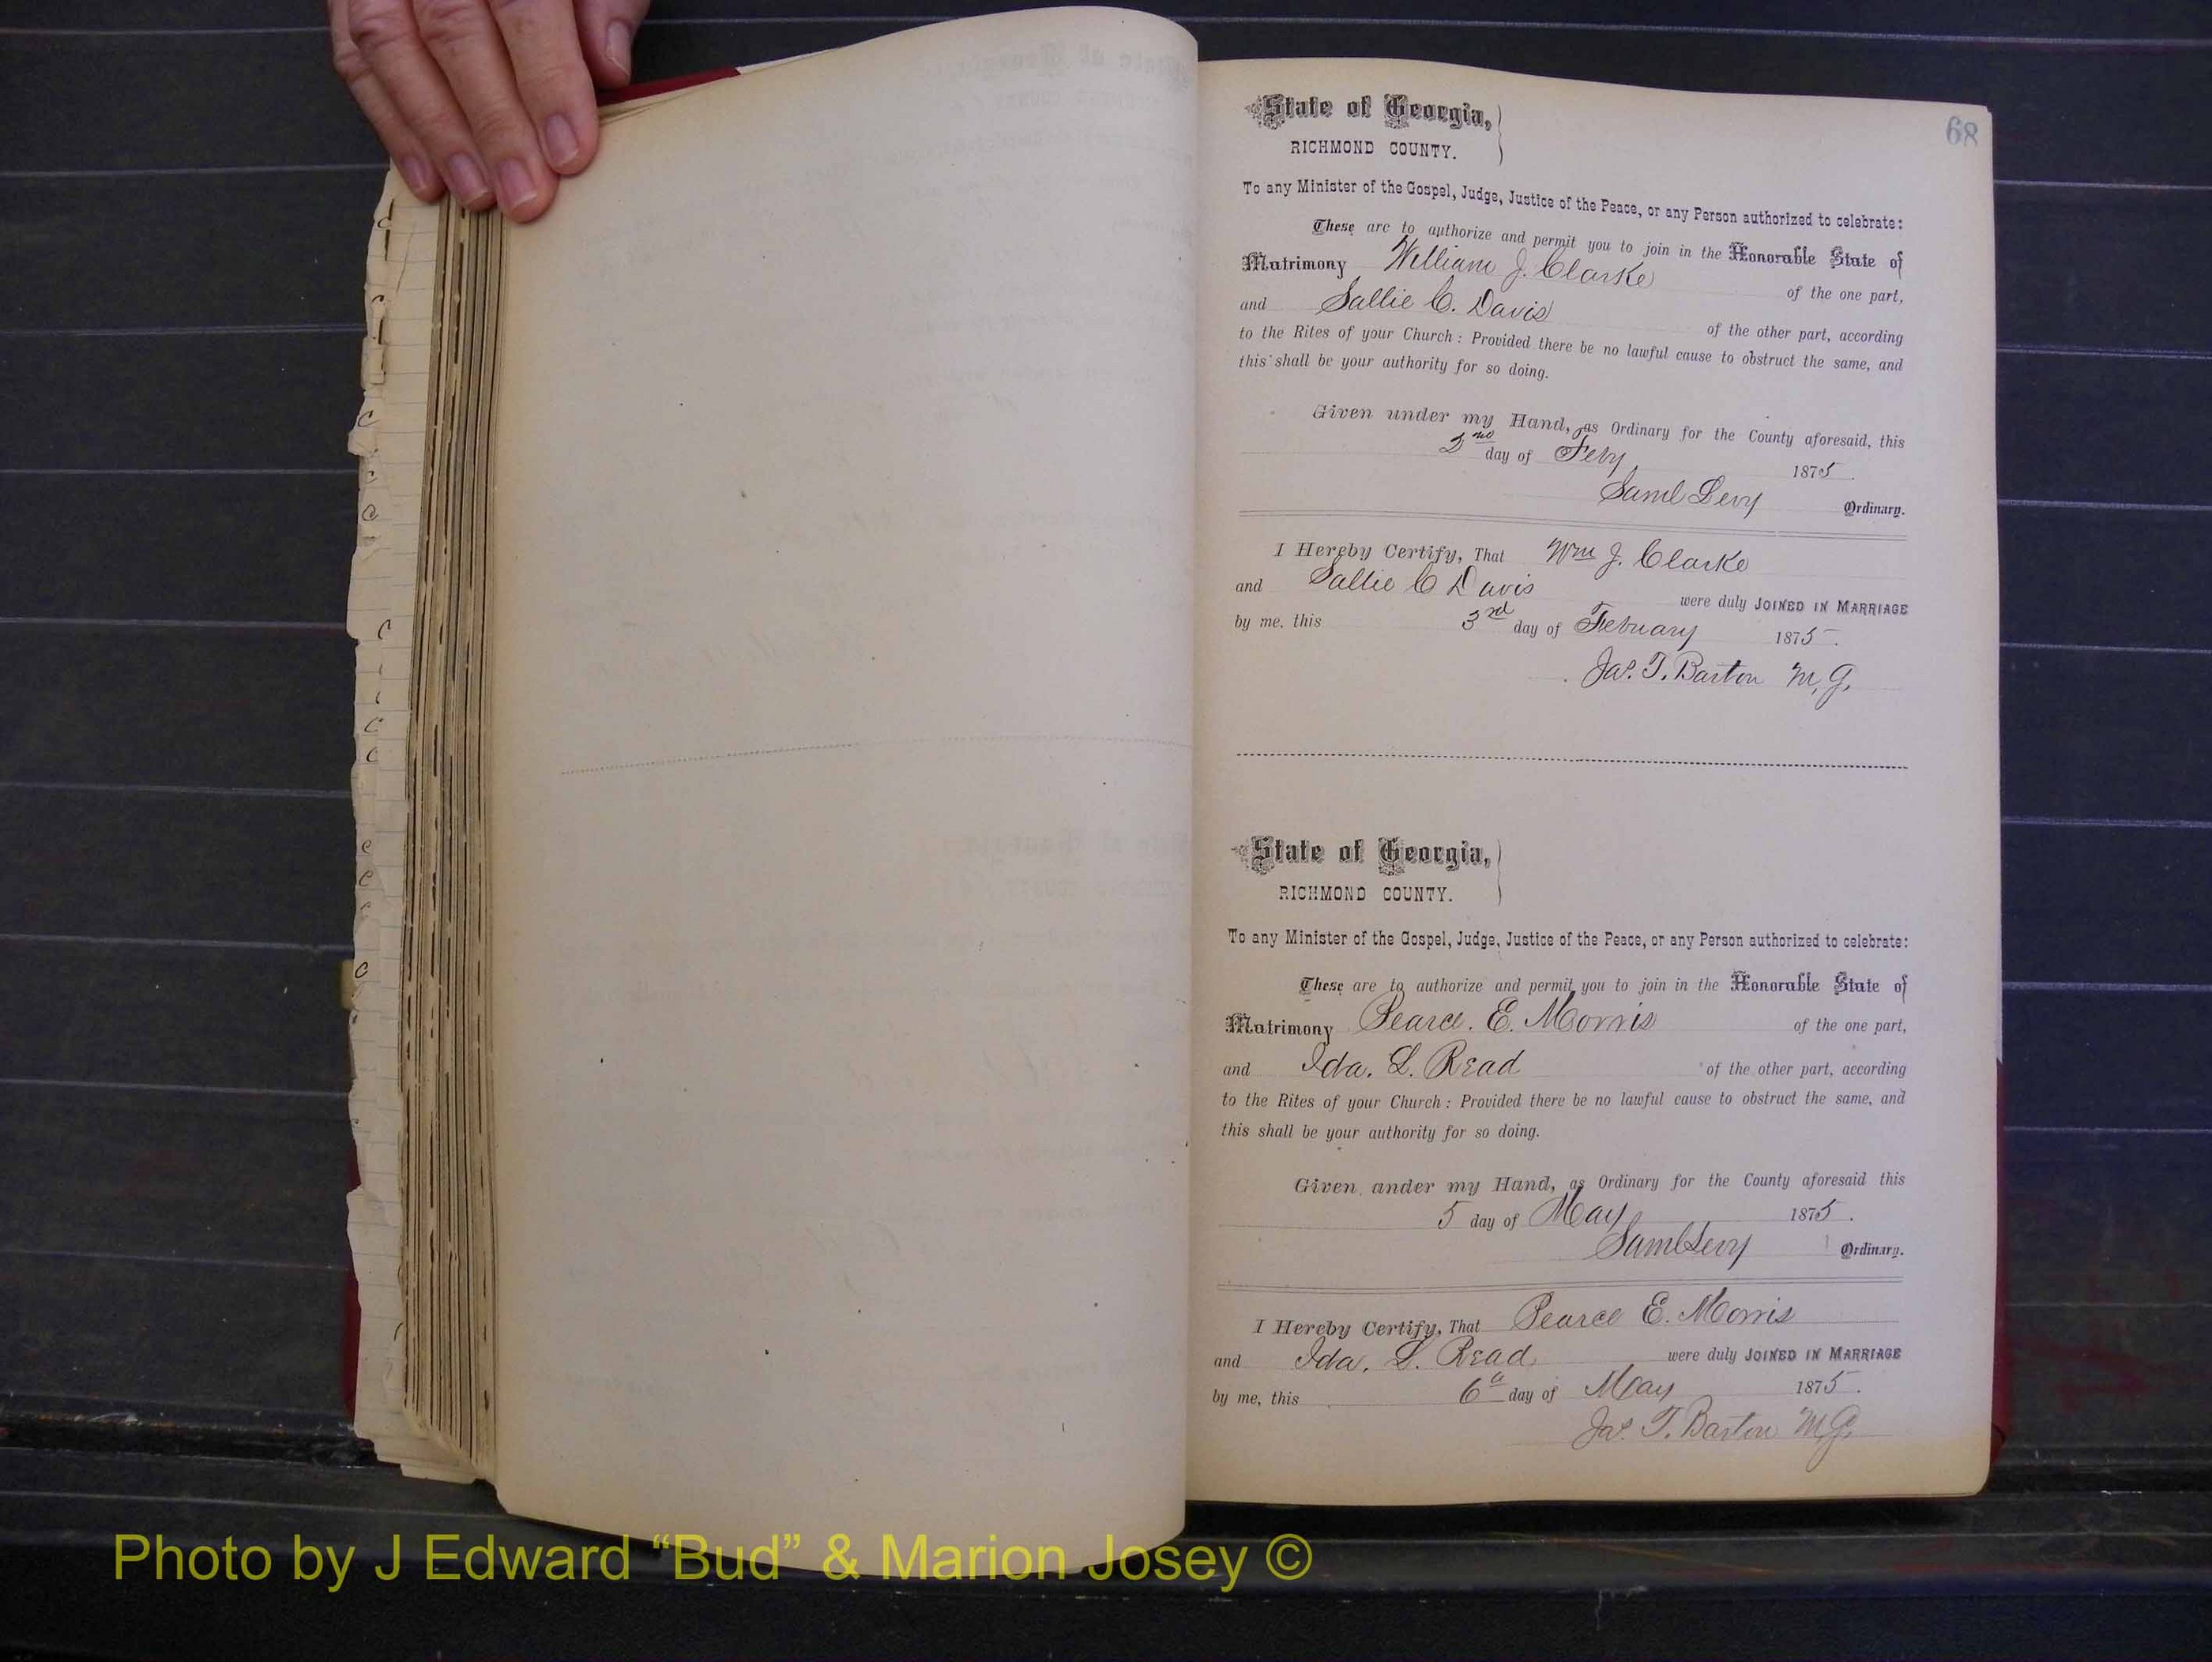 68
State of Georgia,
RICHMOND COUNTY.
To any Minister of the Gospel, Judge, Justice of the Peace, or any Person authorized to celebrate:
These are to authorize and permit you to join in the Honorable State of
Matrimony William J. Clarke of the one part,
and Sallie C. Davis of the other part, according
to the Rites of your Church: Provided there be no lawful cause to obstruct the same, and
this shall be your authority for so doing.
Given under my Hand, as Ordinary for the County aforesaid, this
2nd day of Feby 1875.
Saml Levy Ordinary.
I Hereby Certify, That Wm J. Clarke
and Sallie C Davis were duly JOINED IN MARRIAGE
by me, this 3rd day of February 1875.
Jas. T. Barton M,G,
State of Georgia,
RICHMOND COUNTY.
To any Minister of the Gospel, Judge, Justice of the Peace, or any Person authorized to celebrate:
These are to authorize and permit you to join in the Honorable State of
Matrimony Pearce. E. Morris of the one part,
and Ida. L. Read of the other part, according
to the Rites of your Church: Provided there be no lawful cause to obstruct the same, and
this shall be your authority for so doing.
Given under my Hand, as Ordinary for the County aforesaid this
5 day of May 1875.
Saml Levy Ordinary.
I Hereby Certify, That Pearce E. Morris
and Ida. L. Read were duly JOINED IN MARRIAGE
by me, this 6th day of May 1875.
Jas. T. Barton M,G,
Photo by J Edward “Bud” & Marion Josey ©